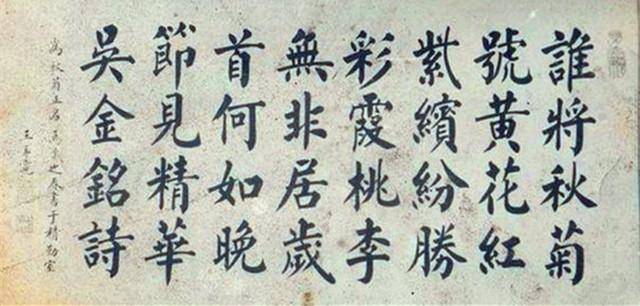 誰將秋菊
號黃花紅
紫繽紛勝
彩霞桃李
無非居歲
首何如晚
節見精華
吳金銘詩
為秋菊正名